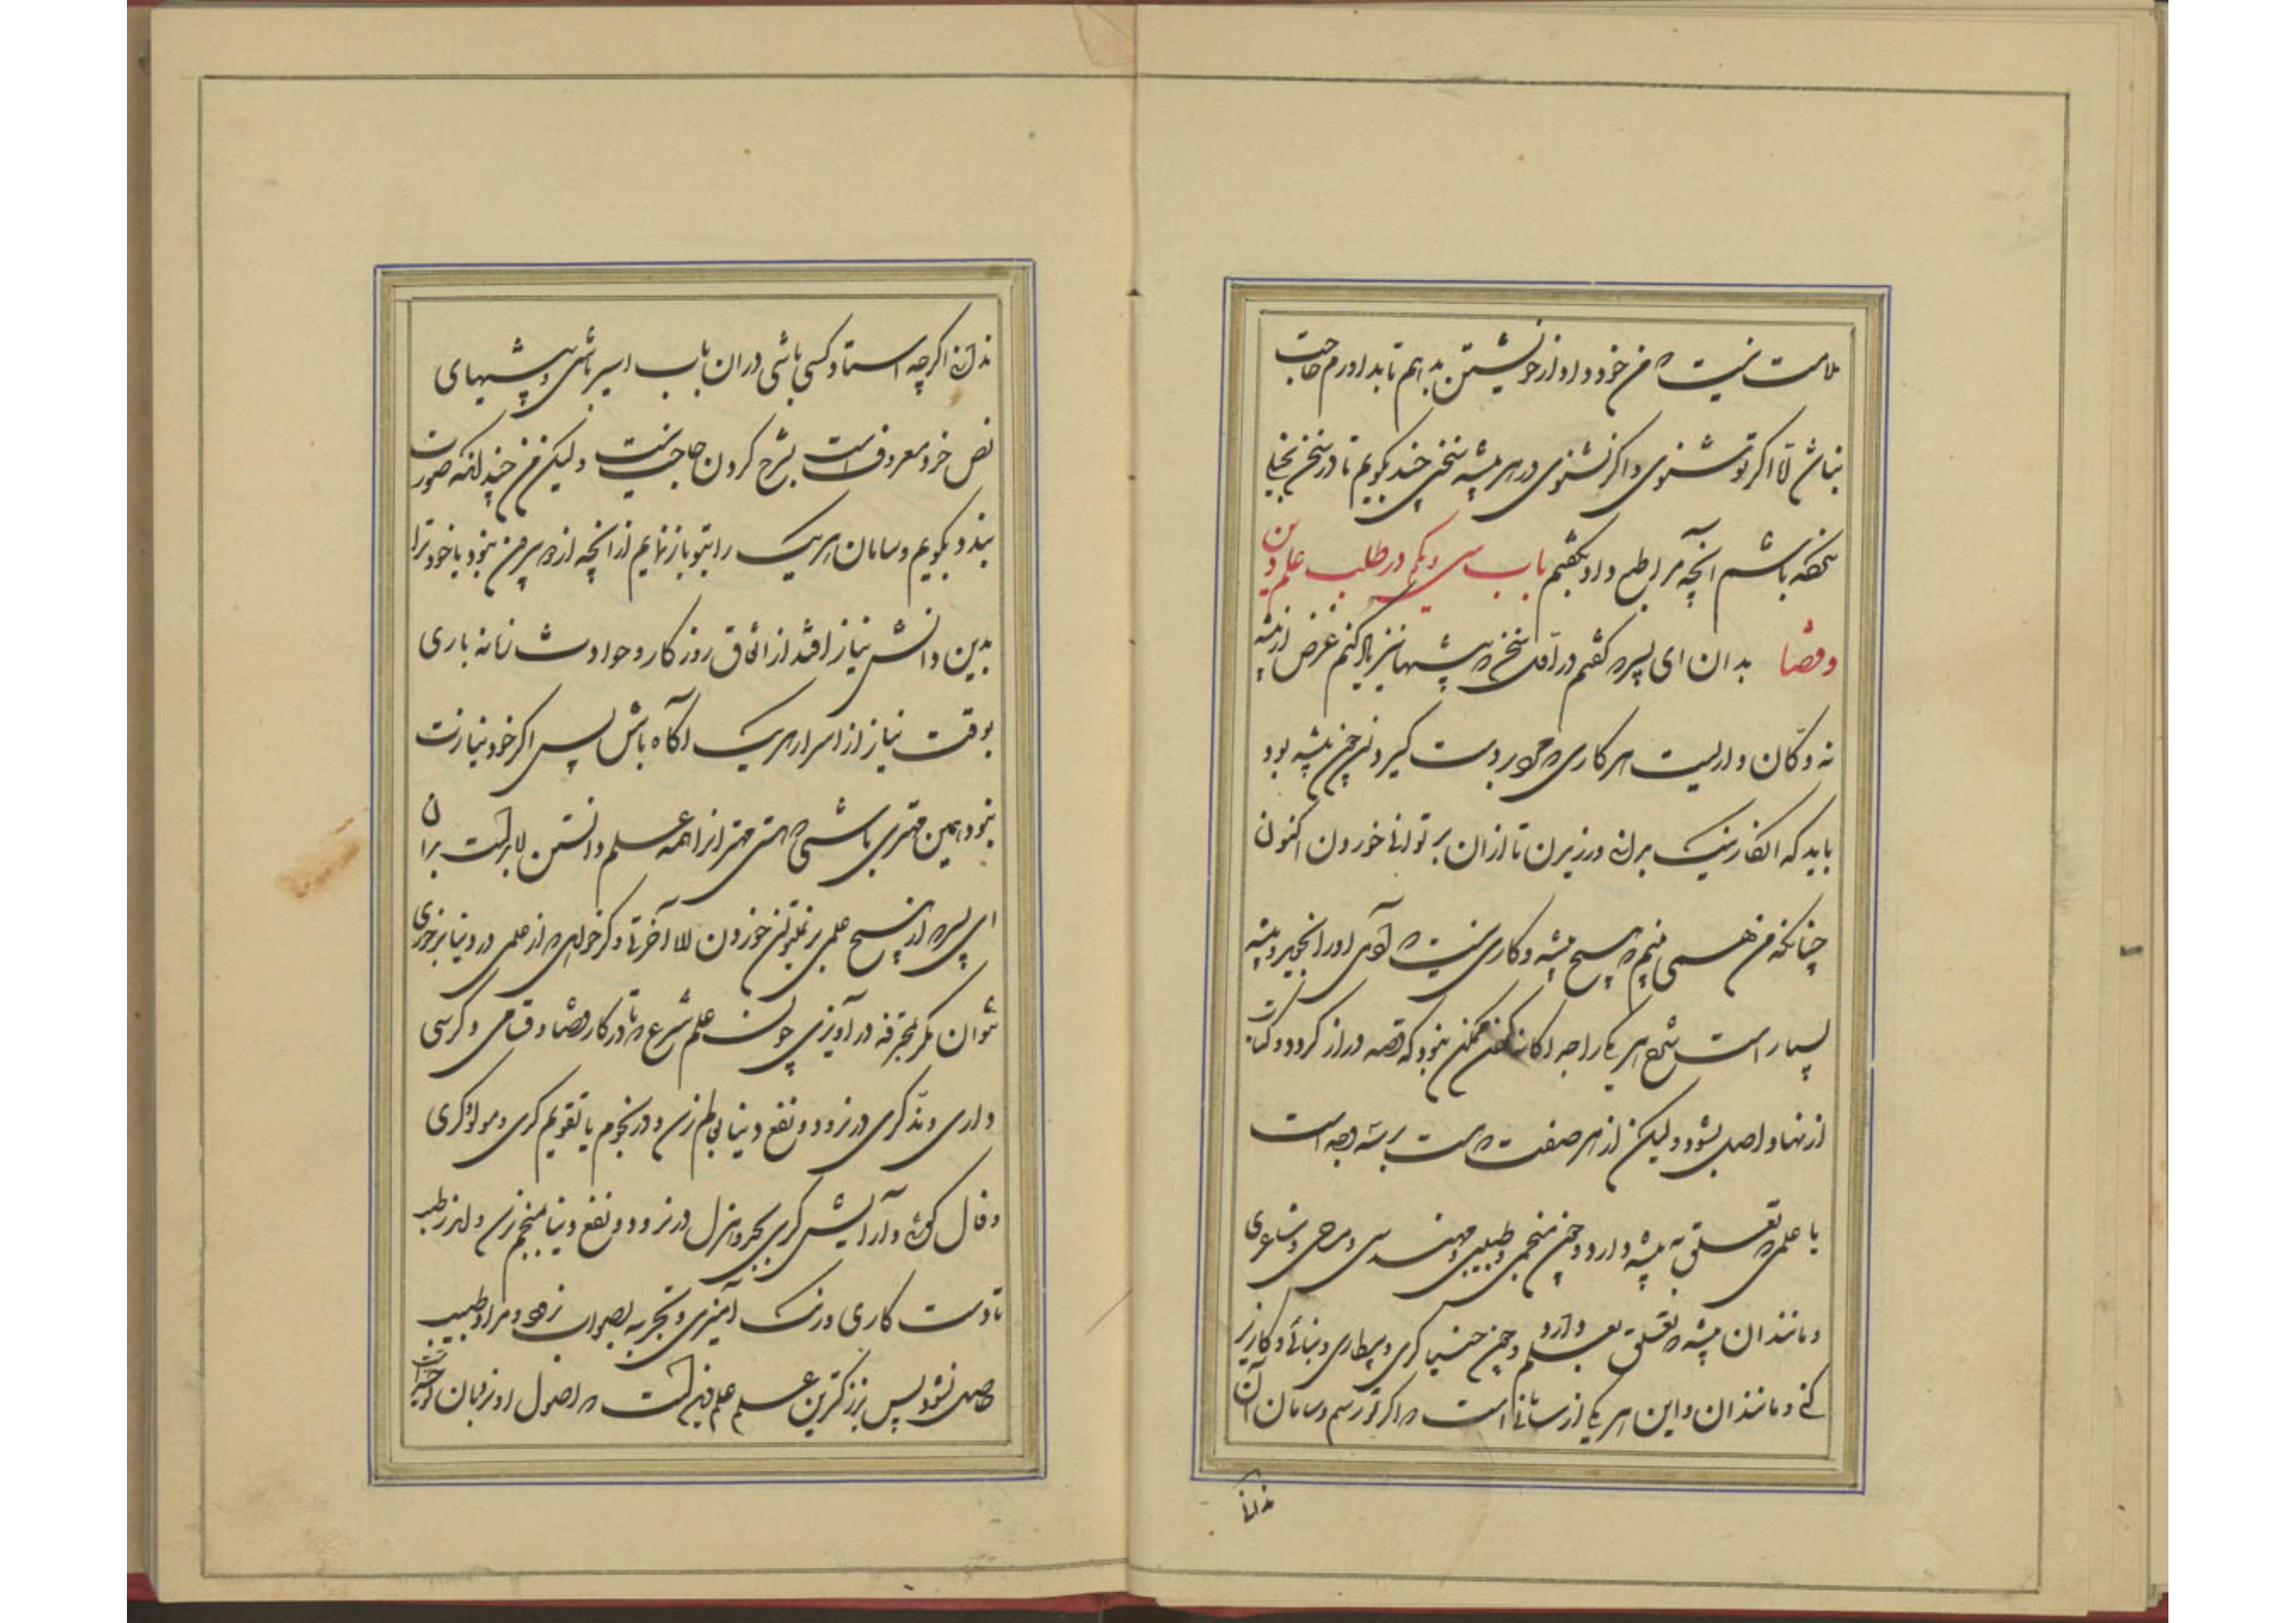 ملامت نیست که من خود داد از خویشتن بدهم تا بداورم حاجت
نباشد اما اگر تو بشنوی و اگر نشنوی در هر پیشه سخنی چند بگویم تا در سخن بخیلی
نکرده باشم آنچه مرا بطبع داد بگفتم باب سی و یکم در طلب علم دین
و قضا بدان ای پسر که گفتم در اول سخن که پیشها نیز یاد کنم غرض از پیشه
نه دکان داریست هر کاری که مرد بر دست گیرد آن چون پیشه بود
باید که آن کار نیک بدانی ورزیدن تا از آن بر توانی خوردن اکنون
چنانکه من همی بینم که هیچ پیشه و کاری نیست که آدمی آورا بجوید و پیشه
بسیار است شرح هر یکی را جداگانه گفتن ممکن نبود که قصه دراز گردد و کتاب
از نهاد و اصل بشود ولیکن از هر صفت که هست بر سه وجه است
یا علمی که تعلق به پیشه دارد و چون منجمی و طبیبی و مهندسی و مساحی و شاعری
و مانند آن یا پیشه که تعلق بعلم دارد و چون خنیاگری و بیطاری و بنائی و کاریز
کنی و مانند آن و این هر یکی را سامانی است که اگر تو رسم و سامان آن
ندانی
ندانی اگرچه استاد کسی باشی در آن باب اسیر باشی و پیشهای
نص خود معروف است بشرح کردن حاجت نیست ولیکن من چندانکه صورت
بندد بگویم و سامان هر یک را بتو بازنمایم از آنچه از دو بیرون نبود یا خود ترا
بدین دانش نیاز افتد از اتفاق روزگار و حوادث زمانه باری
بوقت نیاز از اسرار هر یک آگاه باش پس اگر خود نیازت
نبود همین مهتری باشی که هستی مهتر از همه علم دانستن لابد است بدان
ای پسر که از هیچ علمی بر نتوانی خوردن الا آخرتی و گر خواهی که از علمی در دنیا برخوری
نتوان مگر مخرقه در آویزی چون علم شرع که تا در کار قضا و قسامی و کرسی
داری و مذکری در نرود و نفع دنیا بعالم نرسد و در نجوم یا تقویم گری و مولود گری
و فال گوئی و آرایش گری بجد و هزل در نرود و نفع دنیا بمنجم نرسد و اندر طب
تا دست کاری و رنگ آمیزی و تجربه بصواب نرود و مراد طبیب
حاصل نشود پس بزرگترین علم علم دین است که اصول او بر زبان توحید است